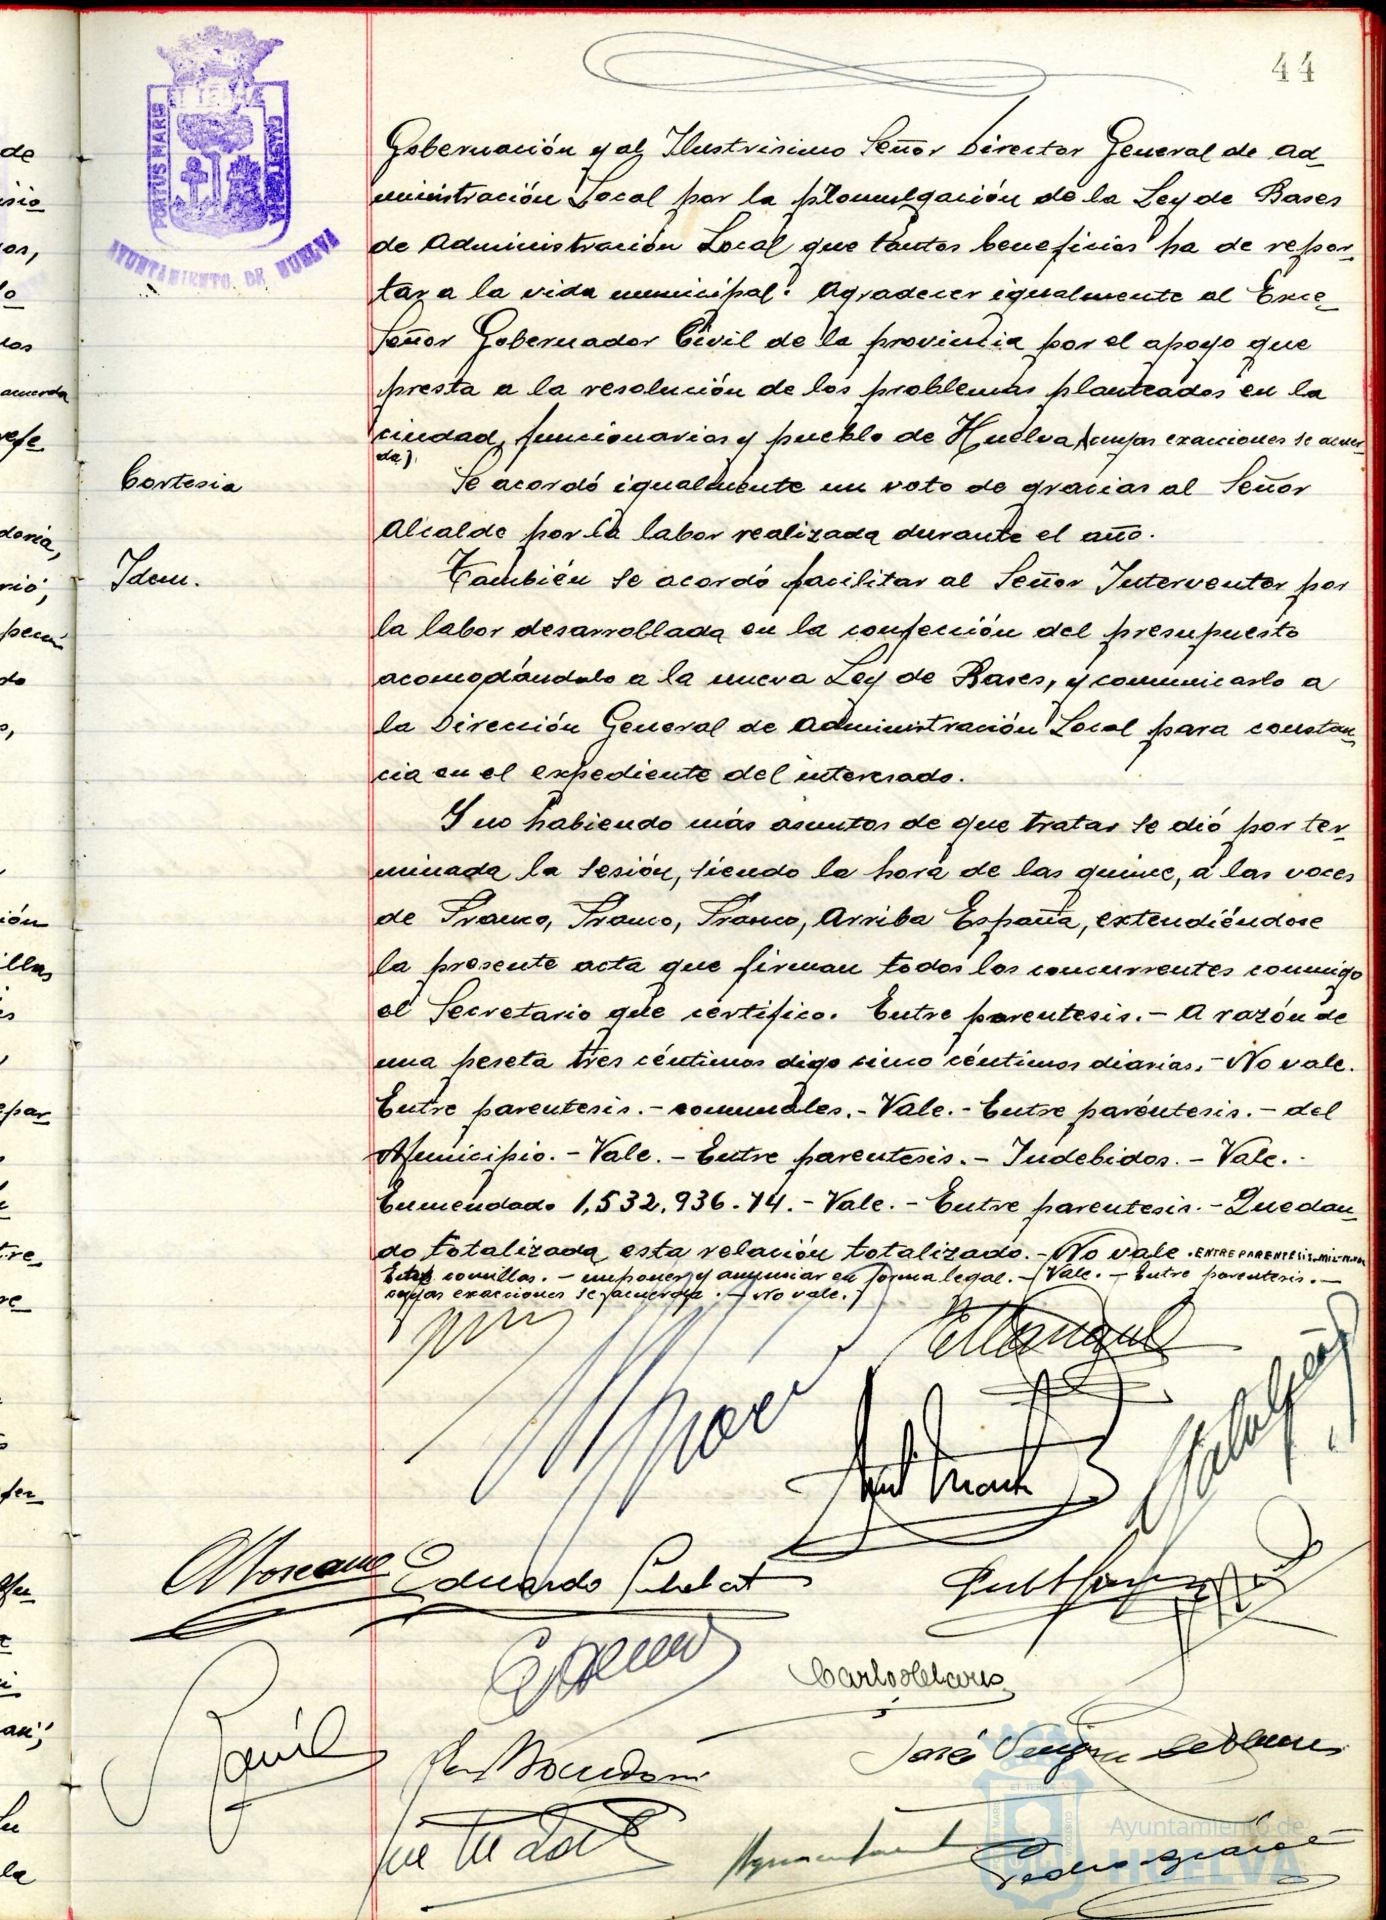 44
PORTUS MARIS
CUSTODIA
AYUNTAMIENTO DE HUELVA
Gobernación y al Ilustrisimo Señor Director General de Ad-
ministración Local por la promulgación de la Ley de Bases
de Administración Local que tantos beneficios ha de repor-
tar a la vida municipal. Agradecer igualmente al Exce-
Señor Gobernador Civil de la provincia por el apoyo que
presta a la resolución de los problemas planteados en la
ciudad, funcionarios y pueblo de Huelva (cuyas exacciones se acuer-
da).
Cortesia
Se acordó igualmente un voto de gracias al Señor
Alcalde por la labor realizada durante el año.
Idem.
También se acordó facilitar al Señor Interventor por
la labor desarrollada en la confección del presupuesto
acomodándolo a la nueva Ley de Bases, y comunicarlo a
la Dirección General de Administración Local para constan-
cia en el expediente del interesado.
Y no habiendo más asuntos de que tratar se dió por ter-
minada la sesión, siendo la hora de las quince, a las voces
de Franco, Franco, Franco, Arriba España, extendiéndose
la presente acta que firman todos los concurrentes conmigo
el Secretario que certifico. Entre parentesis.- A razón de
una peseta tres céntimos digo cinco céntimos diarias.- No vale.
Entre parentesis.- comunales.- Vale.- Entre paréntesis.- del
Municipio.- Vale.- Entre parentesis.- Indebidos.- Vale.-
Enmendado 1,532.936.74.- Vale.- Entre parentesis.- Quedan-
do totalizada esta relación totalizado.- No vale. ENTRE PARENTESIS
Entre comillas.- imponer y anunciar en forma legal.- Vale.- Entre parentesis.-
cuyas exacciones se acuerda.- No vale.
Eduardo
José
Pedro
Ayuntamiento de
HUELVA